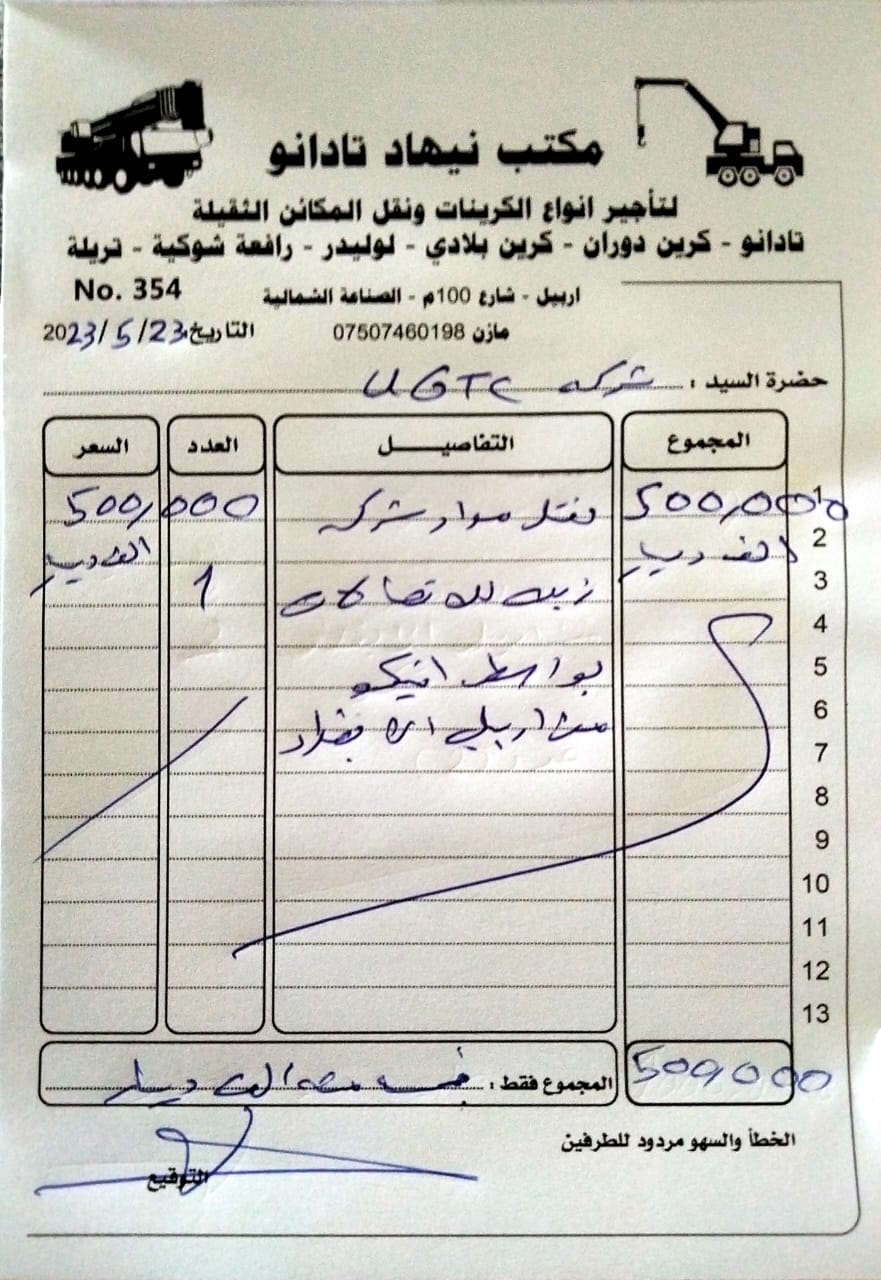 مكتب نيهاد تادانو
لتأجير انواع الكرينات ونقل المكائن الثقيلة
تادانو - كرين دوران - كرين بلادي - لوليدر - رافعة شوكية - تريلة
No. 354
اربيل - شارع 100م - الصناعة الشمالية
التاريخ: 2023/5/23
مازن 07507460198
حضرة السيد : شركه UGTC
المجموع التفاصيــــل العدد السعر
1 500,000 نقل مواد شركه 500,000
2 الف دينار الف دينار
3 للاتصالات 1
4
5 بواسطه
6
7 من اربيل الى بغداد
8
9
10
11
12
13
500,000 المجموع فقط : خمسه مئه الف دينار
الخطأ والسهو مردود للطرفين
التوقيع